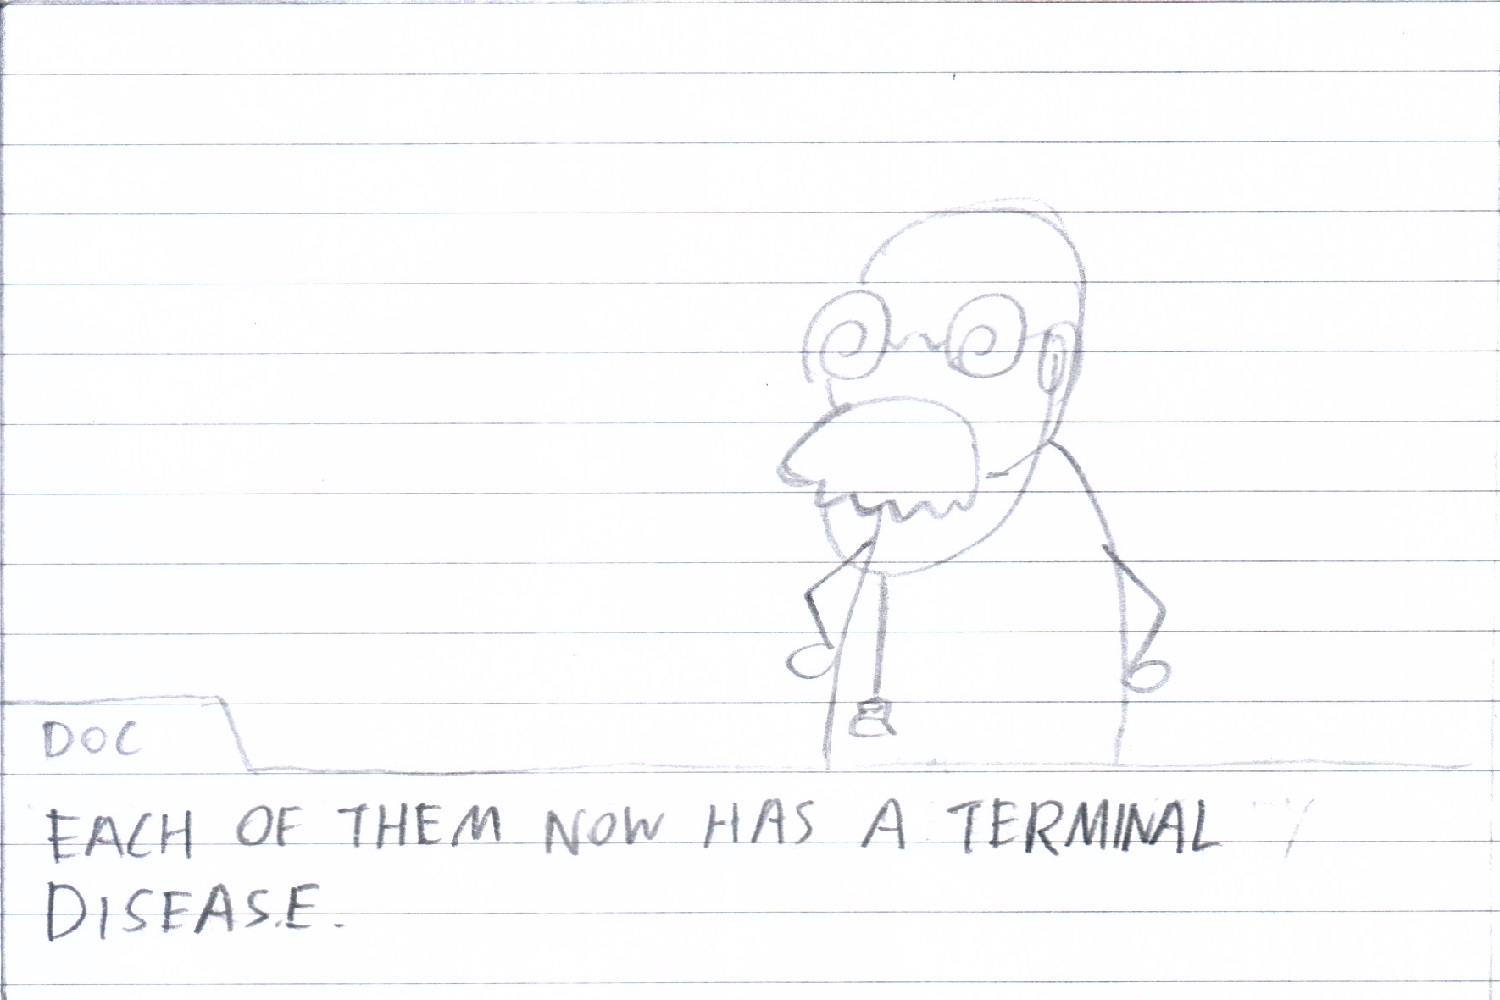 DOC
EACH OF THEM NOW HAS A TERMINAL
DISEASE.